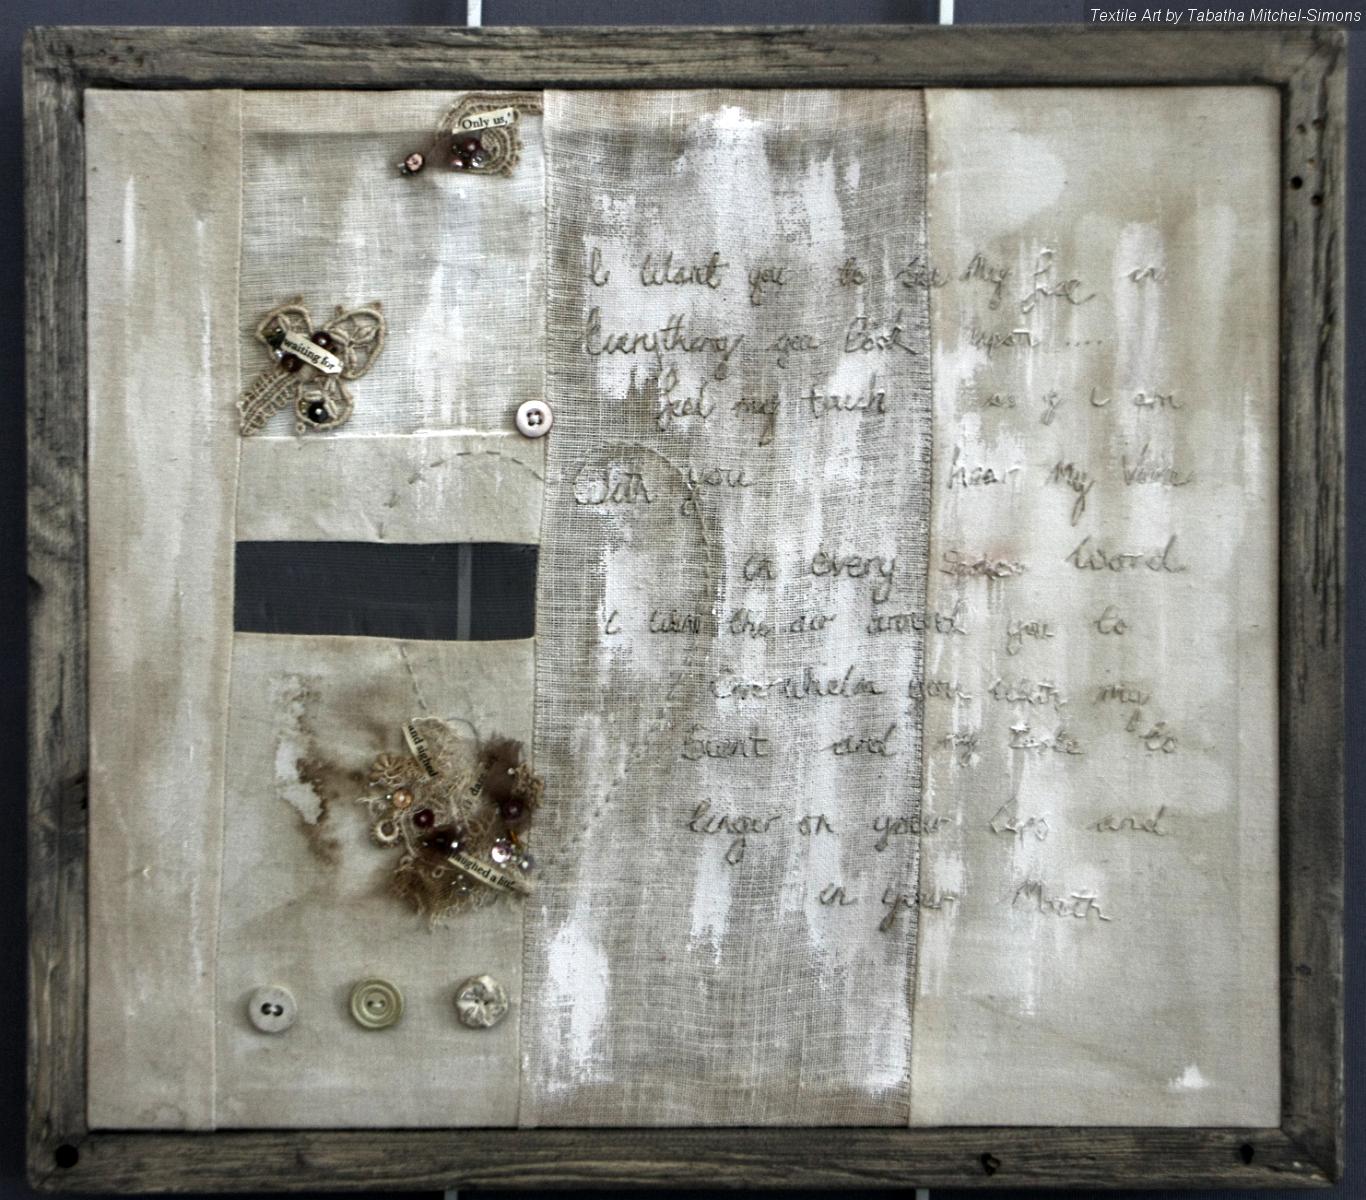 Textile Art by Tabatha Mitchel-Simons
Only us,'
waiting for
and sighed
laughed a little
I Want you to See My face in
Everything you Look upon ....
feel my touch as if i am
With you hear My Voice
in every word
i want the air around you to
Overwhelm you with my
Scent and my taste to
linger on your Lips and
in your Mouth